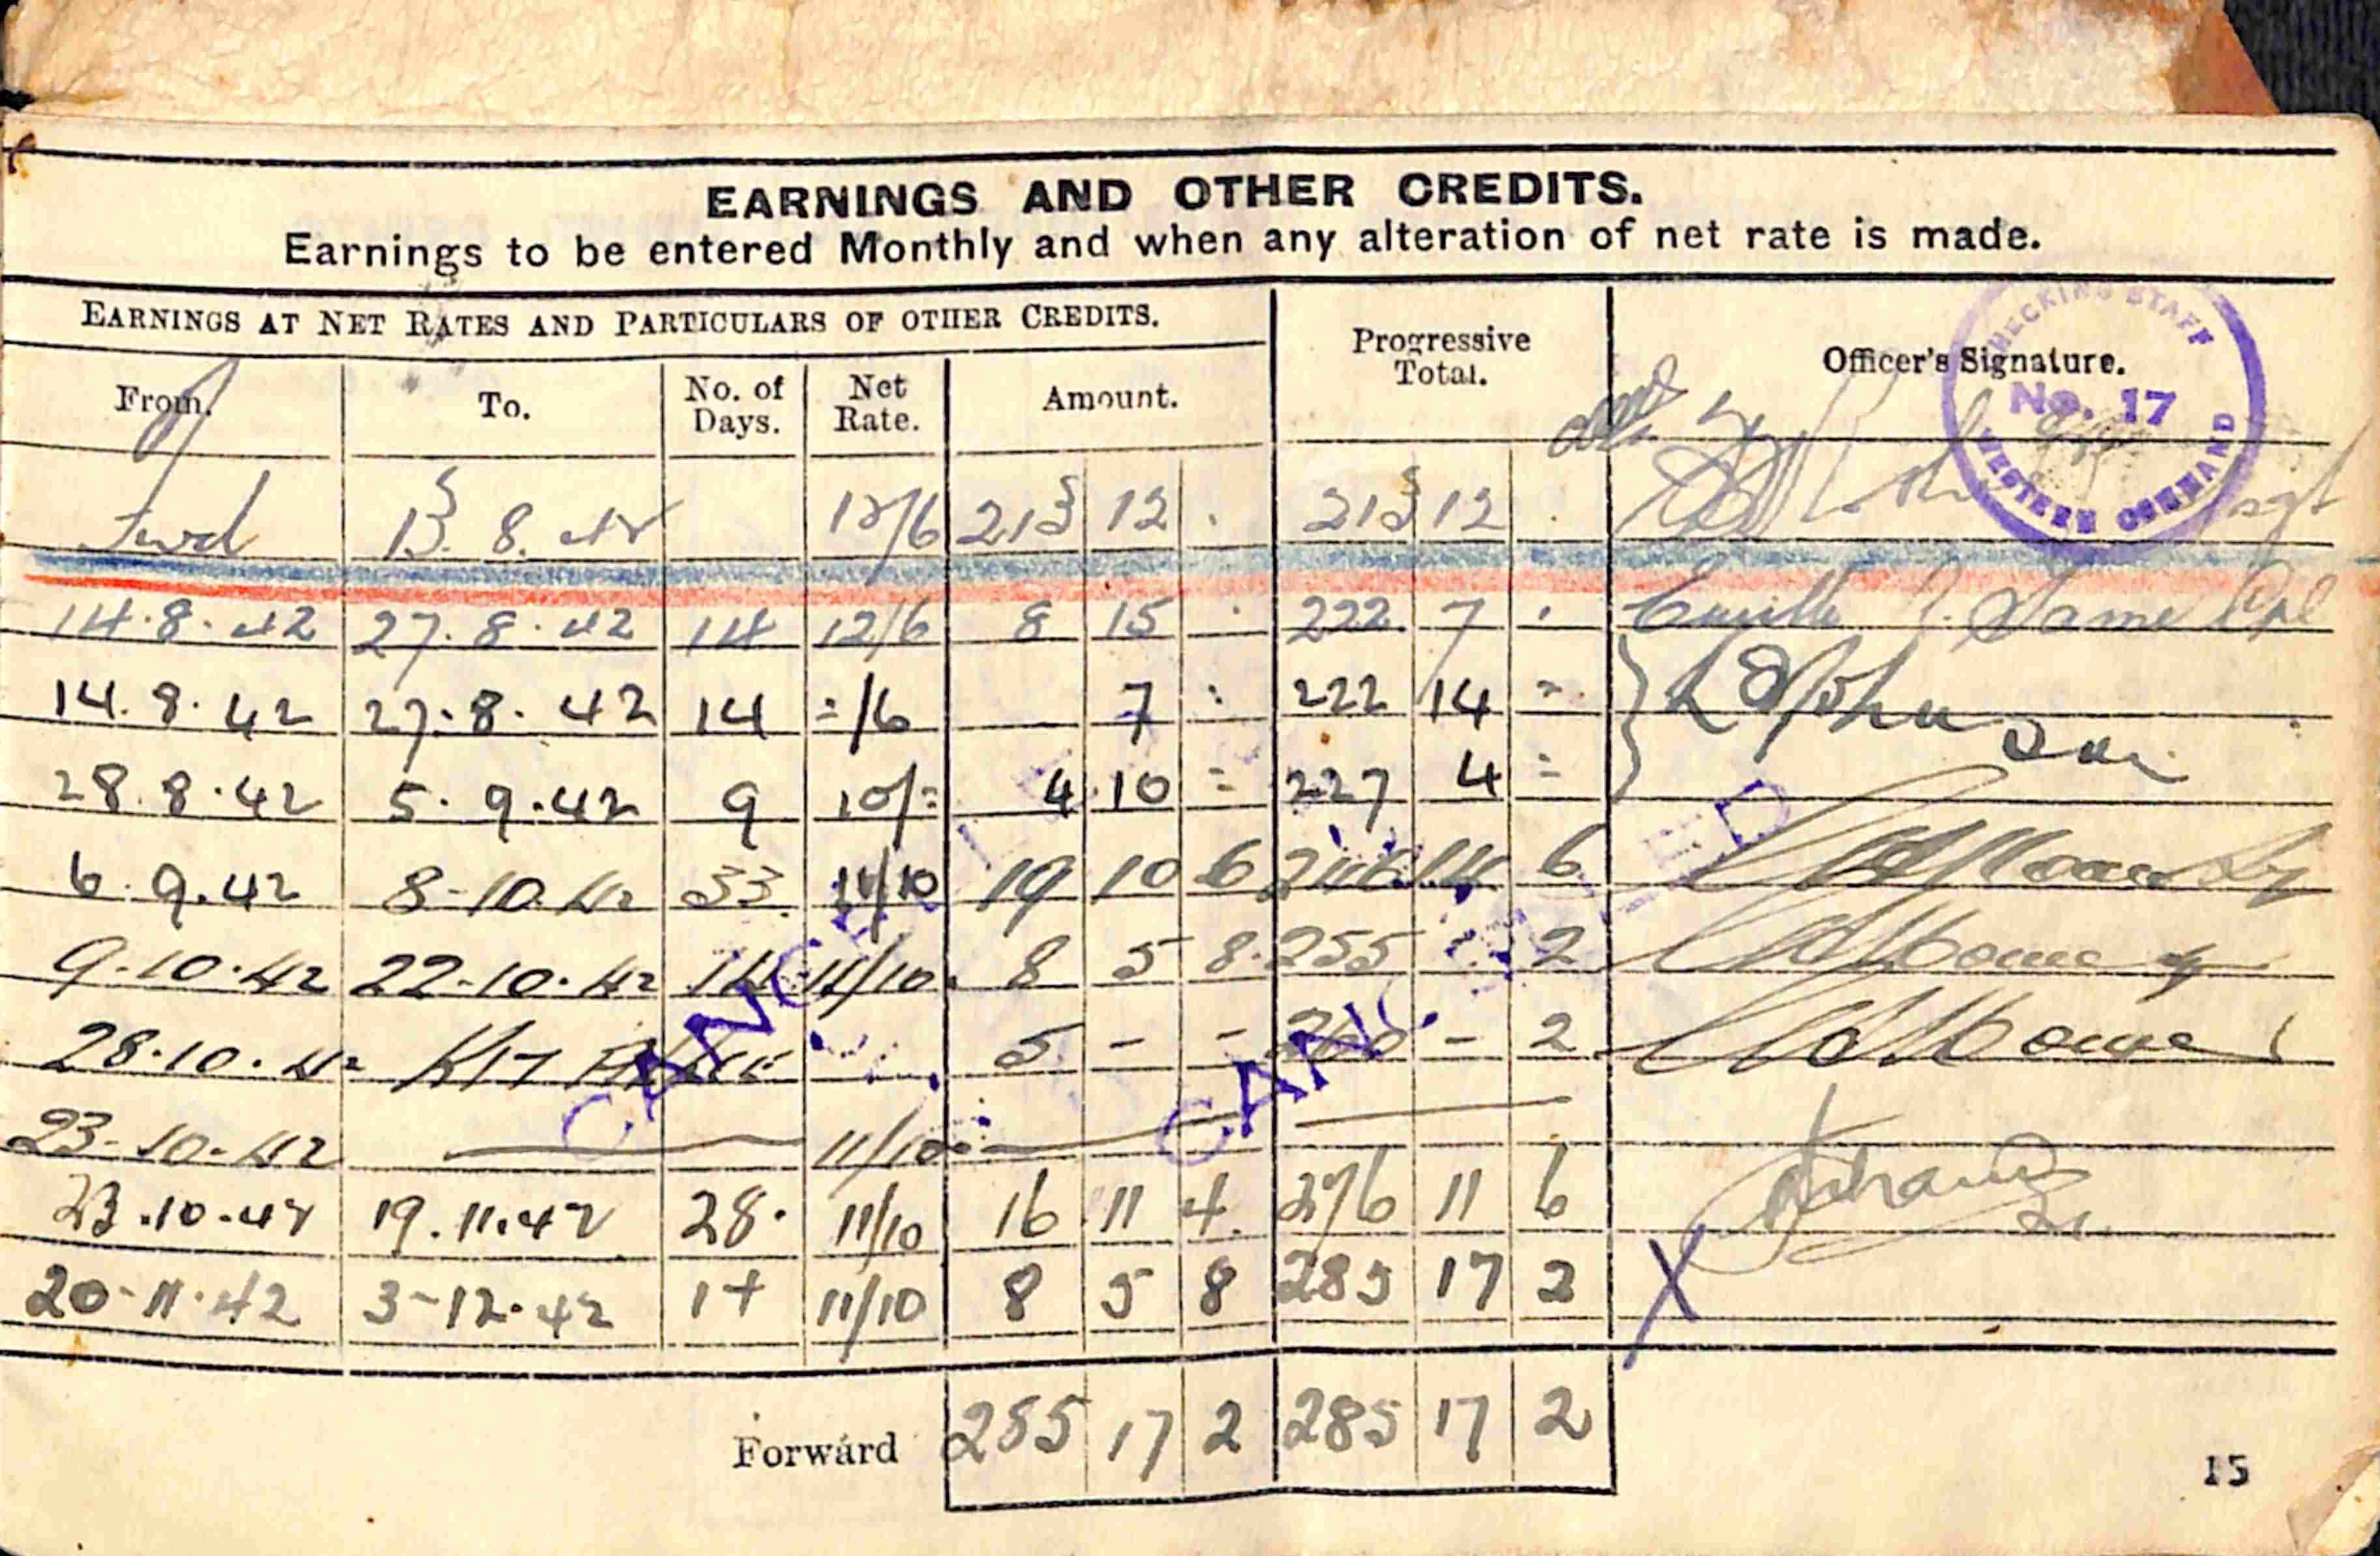 EARNINGS AND OTHER CREDITS.
Earnings to be entered Monthly and when any alteration of net rate is made.
EARNINGS AT NET RATES AND PARTICULARS OF OTHER CREDITS.
Progressive Total.
Officer's Signature.
CHECKING STAFF No. 17 WESTERN COMMAND
From. To. No. of Days. Net Rate. Amount.
Fwd 13. 8. 42 12/6 213 12 . 213 12 . Sgt
14.8.42 27.8.42 14 12/6 8 15 . 222 7 . Cpl
14.8.42 27.8.42 14 =/6 7 = 222 14 = Johnson
28.8.42 5.9.42 9 10/= 4 10 = 227 4 =
6.9.42 8-10.42 33. 11/10 19 10 6 246 14 6
9.10.42 22.10.42 14 11/10. 8 5 8. 255 2
28.10.42 5 - - 260 - 2
23-10.42 11/10
23.10.42 19.11.42 28. 11/10 16 11 4. 276 11 6
20-11.42 3-12.42 14 11/10 8 5 8 285 17 2 X
CANCELLED CANCELLED
Forward 285 17 2 285 17 2
15